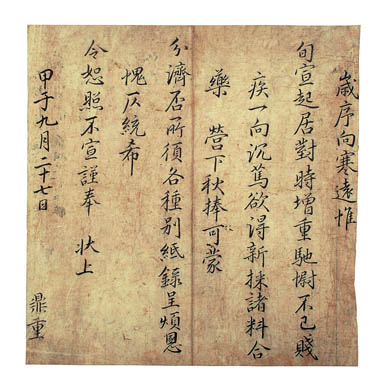 歲序向寒遠惟
旬宣起居對時增重馳慰不已賤
疾一向沉篤欲得新採諸料合
藥 營下秋捧可蒙
分濟否所須各種別紙錄呈煩恩
愧仄統希
令恕照不宣謹奉 狀上
甲子九月二十七日
鼎重